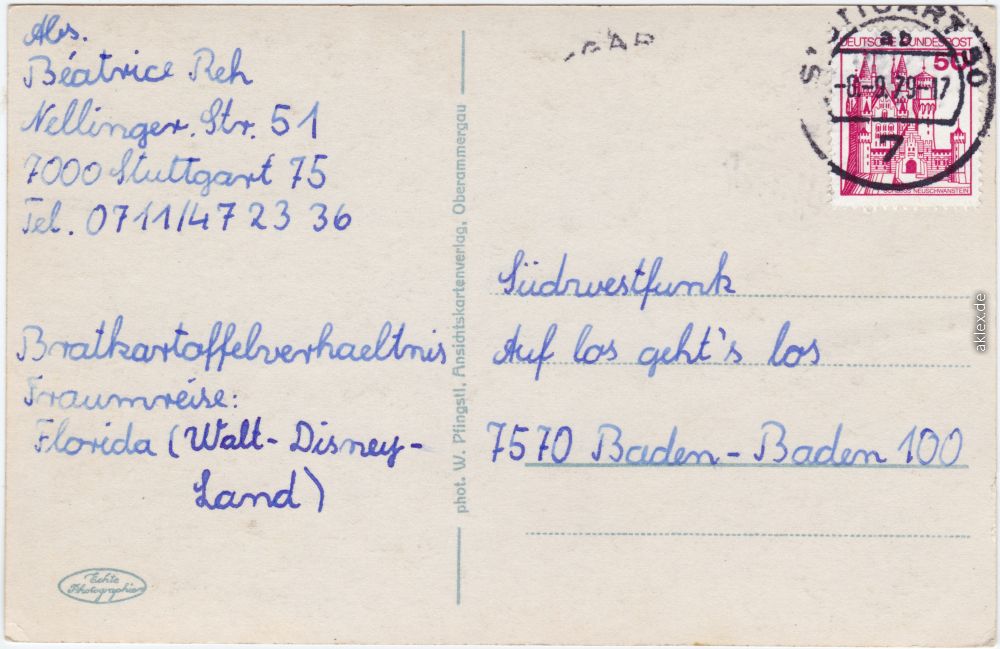 Abs.
Béatrice Reh
Nellinger. Str. 51
7000 Stuttgart 75
Tel. 0711/47 23 36
Bratkartoffelverhaeltnis
Traumreise:
Florida (Walt-Disney-
Land)
Echte
Photographie
phot. W. Pfingstl, Ansichtskartenverlag, Oberammergau
STUTTGART 30
ab
-8.-8.79-17
7
DEUTSCHE BUNDESPOST
50
SCHLOSS NEUSCHWANSTEIN
Südwestfunk
Auf los geht's los
7570 Baden-Baden 100
aklex.de